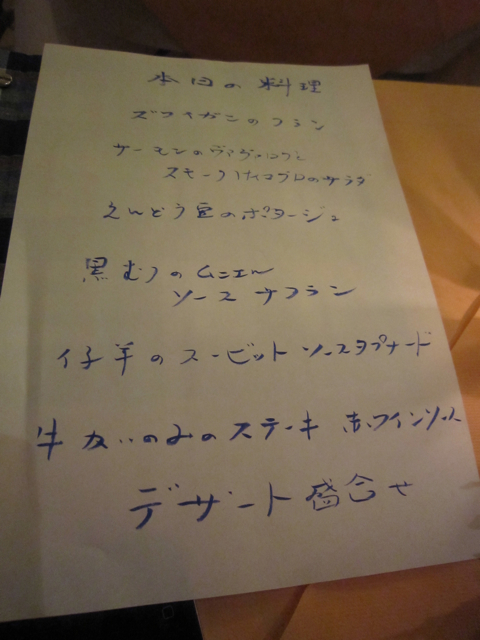 本日の料理
ズワイガニのフラン
サーモンの
スモークしたマグロのサラダ
えんどう豆のポタージュ
黒むつのムニエル
ソースサフラン
仔羊のスービット ソースタプナード
牛かいのみのステーキ 赤ワインソース
デザート盛合せ